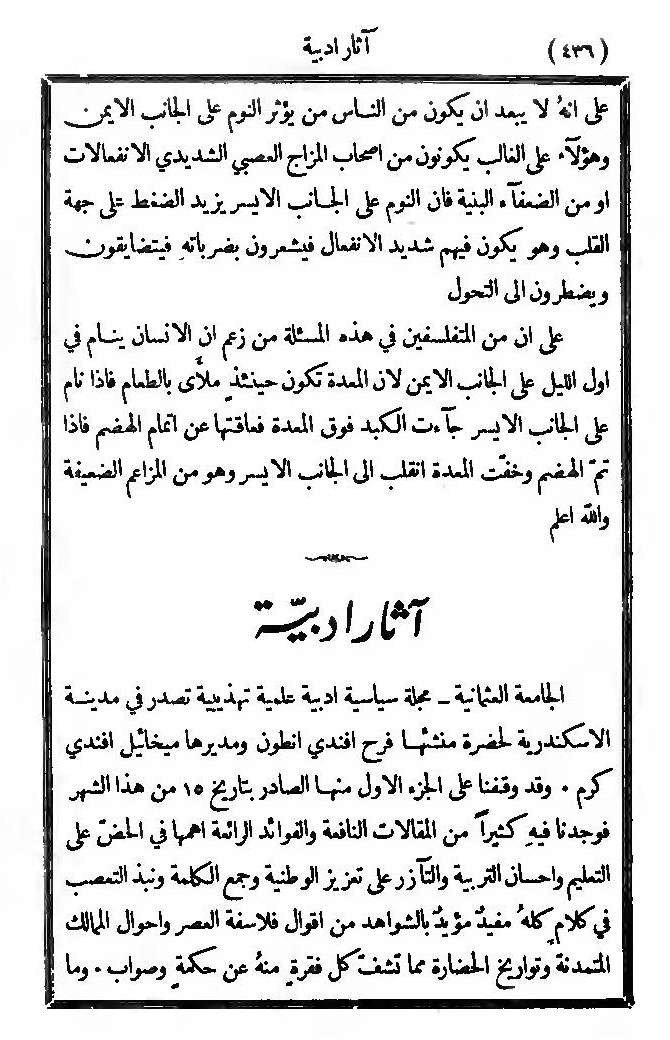 (٤٣٦) آثار ادبية
على انهُ لا يبعد ان يكون من الناس من يؤثر النوم على الجانب الايمن
وهؤلآء على الغالب يكونون من اصحاب المزاج العصبي الشديدي الانفعالات
او من الضعفآء البنية فان النوم على الجانب الايسر يزيد الضغط على جهة
القلب وهو يكون فيهم شديد الانفعال فيشعرون بضرباتهِ فيتضايقون
ويضطرون الى التحول
على ان من المتفلسفين في هذه المسئلة من زعم ان الانسان ينام في
اول الليل على الجانب الايمن لان المعدة تكون حينئذٍ ملأى بالطعام فاذا نام
على الجانب الايسر جآءت الكبد فوق المعدة فعاقتها عن اتمام الهضم فاذا
تمّ الهضم وخفّت المعدة انقلب الى الجانب الايسر وهو من المزاعم الضعيفة
والله اعلم
آثار ادبيّة
الجامعة العثمانية – مجلة سياسية ادبية علمية تهذيبية تصدر في مدينة
الاسكندرية لحضرة منشئها فرح افندي انطون ومديرها ميخائيل افندي
كرم . وقد وقفنا على الجزء الاول منها الصادر بتاريخ ١٥ من هذا الشهر
فوجدنا فيهِ كثيراً من المقالات النافعة والفوائد الرائعة اهمها في الحضّ على
التعليم واحسان التربية والتآزر على تعزيز الوطنية وجمع الكلمة ونبذ التعصب
في كلامٍ كلهُ مفيدٌ مؤيدٌ بالشواهد من اقوال فلاسفة العصر واحوال الممالك
المتمدنة وتواريخ الحضارة مما تشفّ كل فقرةٍ منهُ عن حكمةٍ وصواب . وما